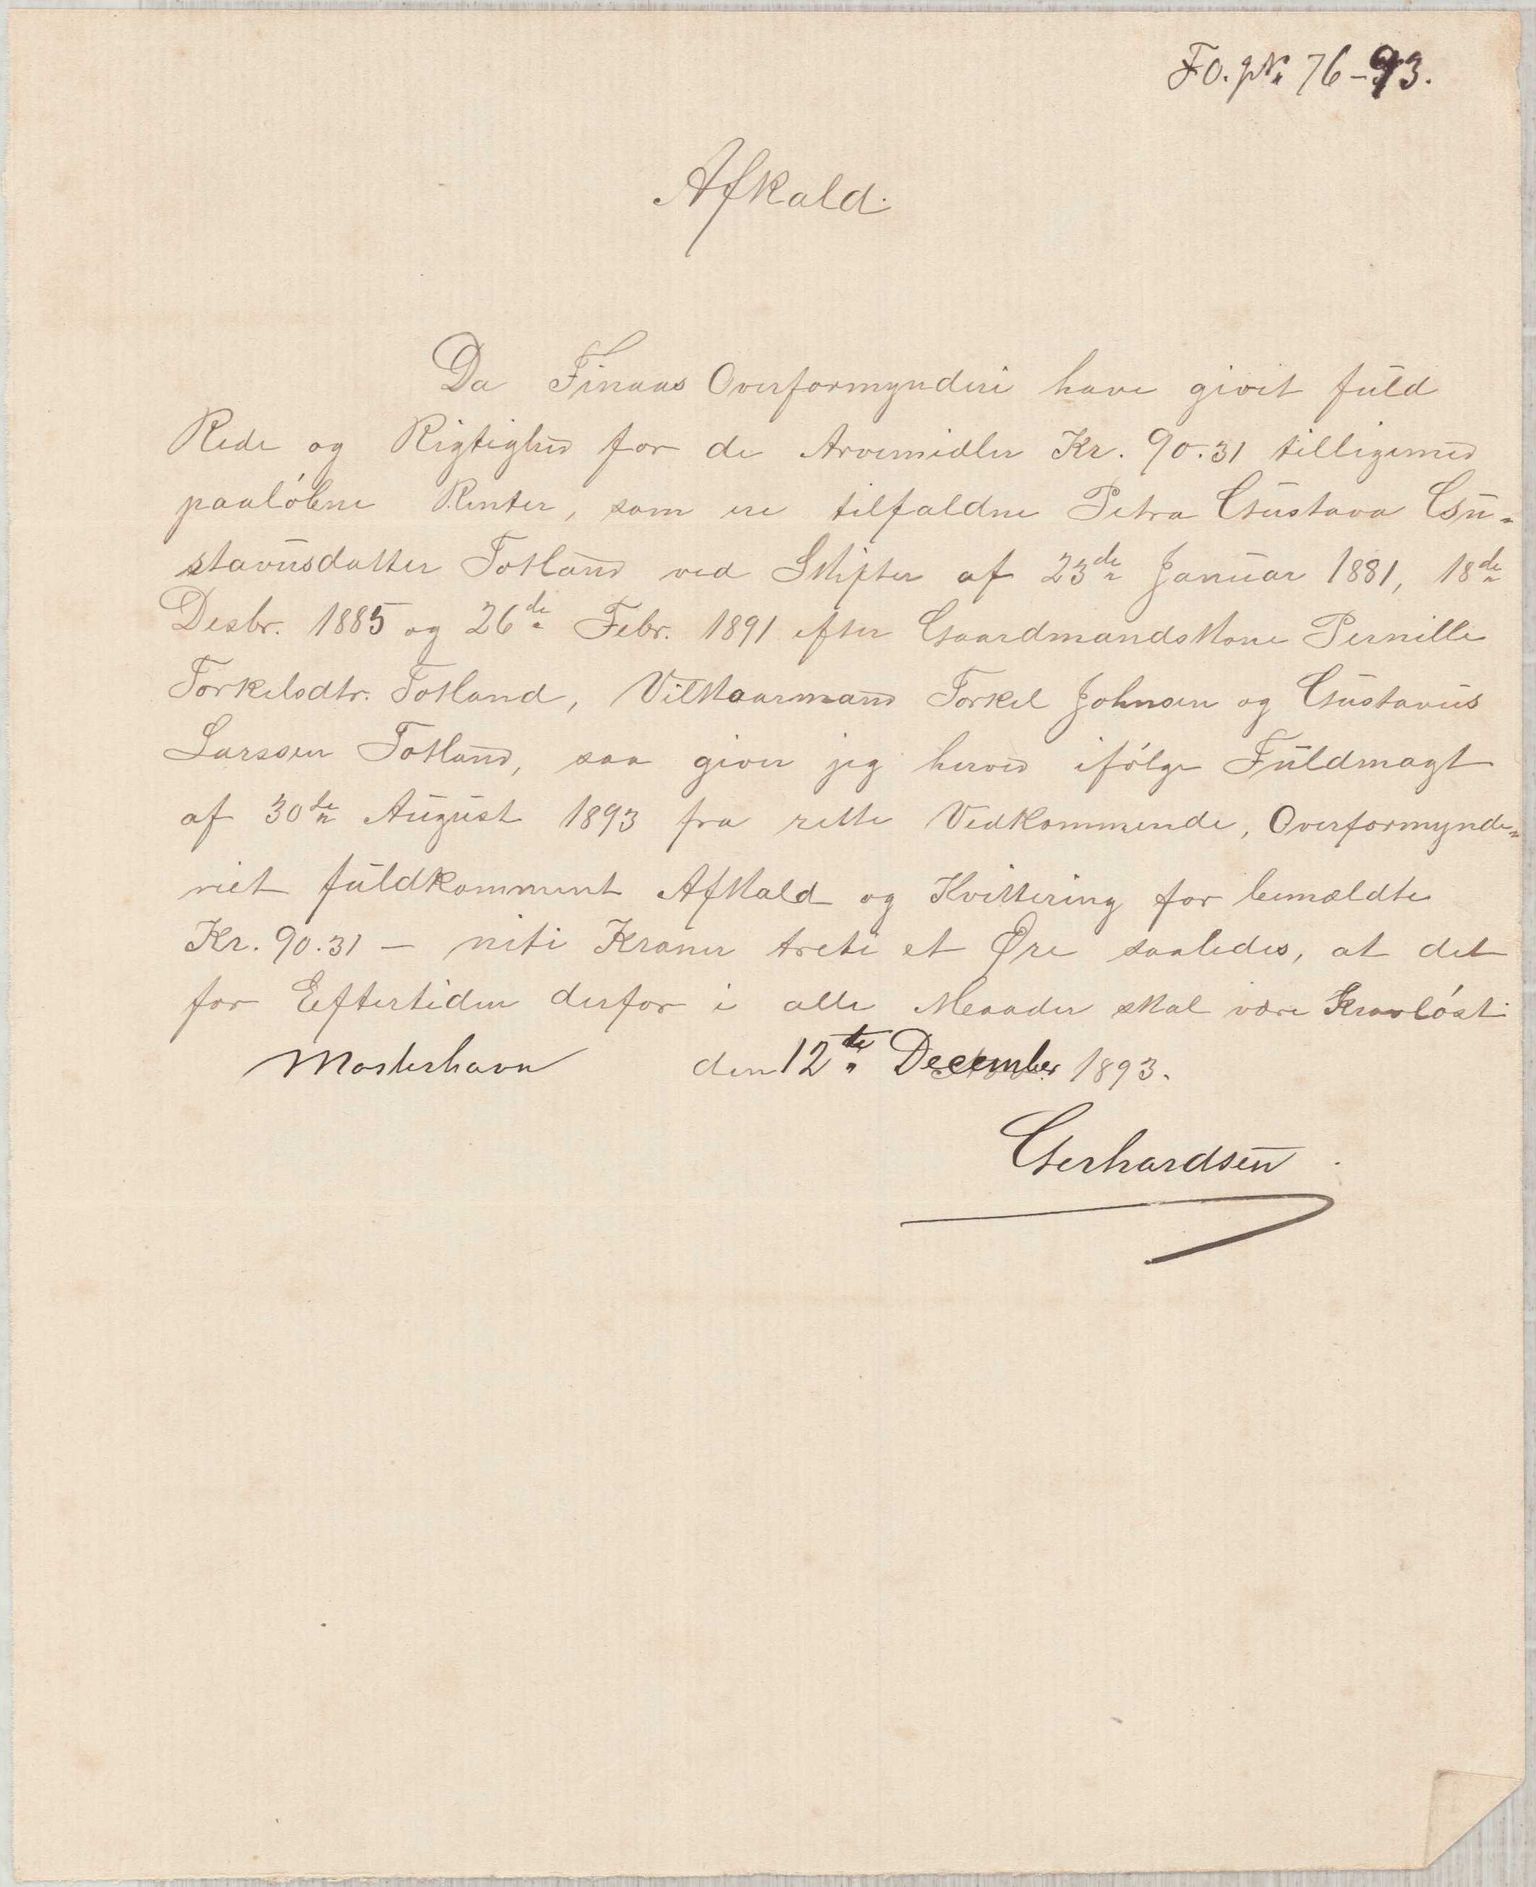 FO. J№ 76-93.
Afkald.
Da Finaas Overformynderi have givet fuld
Rede og Rigtighed for de Arvemidler Kr. 90.31 tilligemed
paaløbne Renter, som ere tilfaldne Petra Gustava Gu-
stavusdatter Totland ved Skifter af 23de Januar 1881, 18de
Desbr. 1885 og 26de Febr. 1891 efter Gaardmandskone Pernille
Torkilsdtr. Totland, Vilkaarmand Torkel Johnsen og Gustavus
Larssen Totland, saa giver jeg herved ifølge Fuldmagt
af 30te August 1893 fra rette Vedkommende, Overformynde-
riet fuldkomment Afkald og Kvittering for bemældte
Kr. 90.31 — niti Kroner treti et Øre saaledes, at det
for Eftertiden derfor i alle Maader skal være Kravløst.
Mosterhavn den 12te December 1893.
Gerhardsen